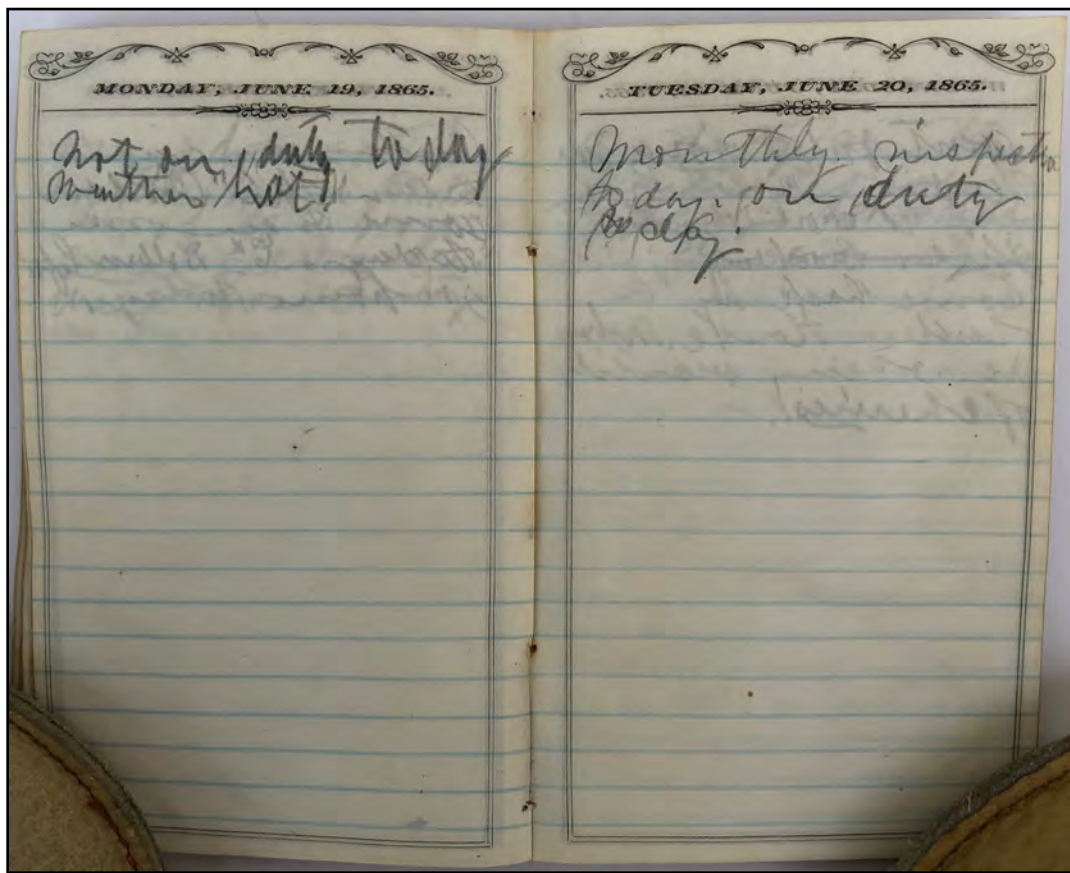 MONDAY, JUNE 19, 1865.
Not on duty to day
Weather hot!
TUESDAY, JUNE 20, 1865.
Monthly inspection
to day. on duty
to day.